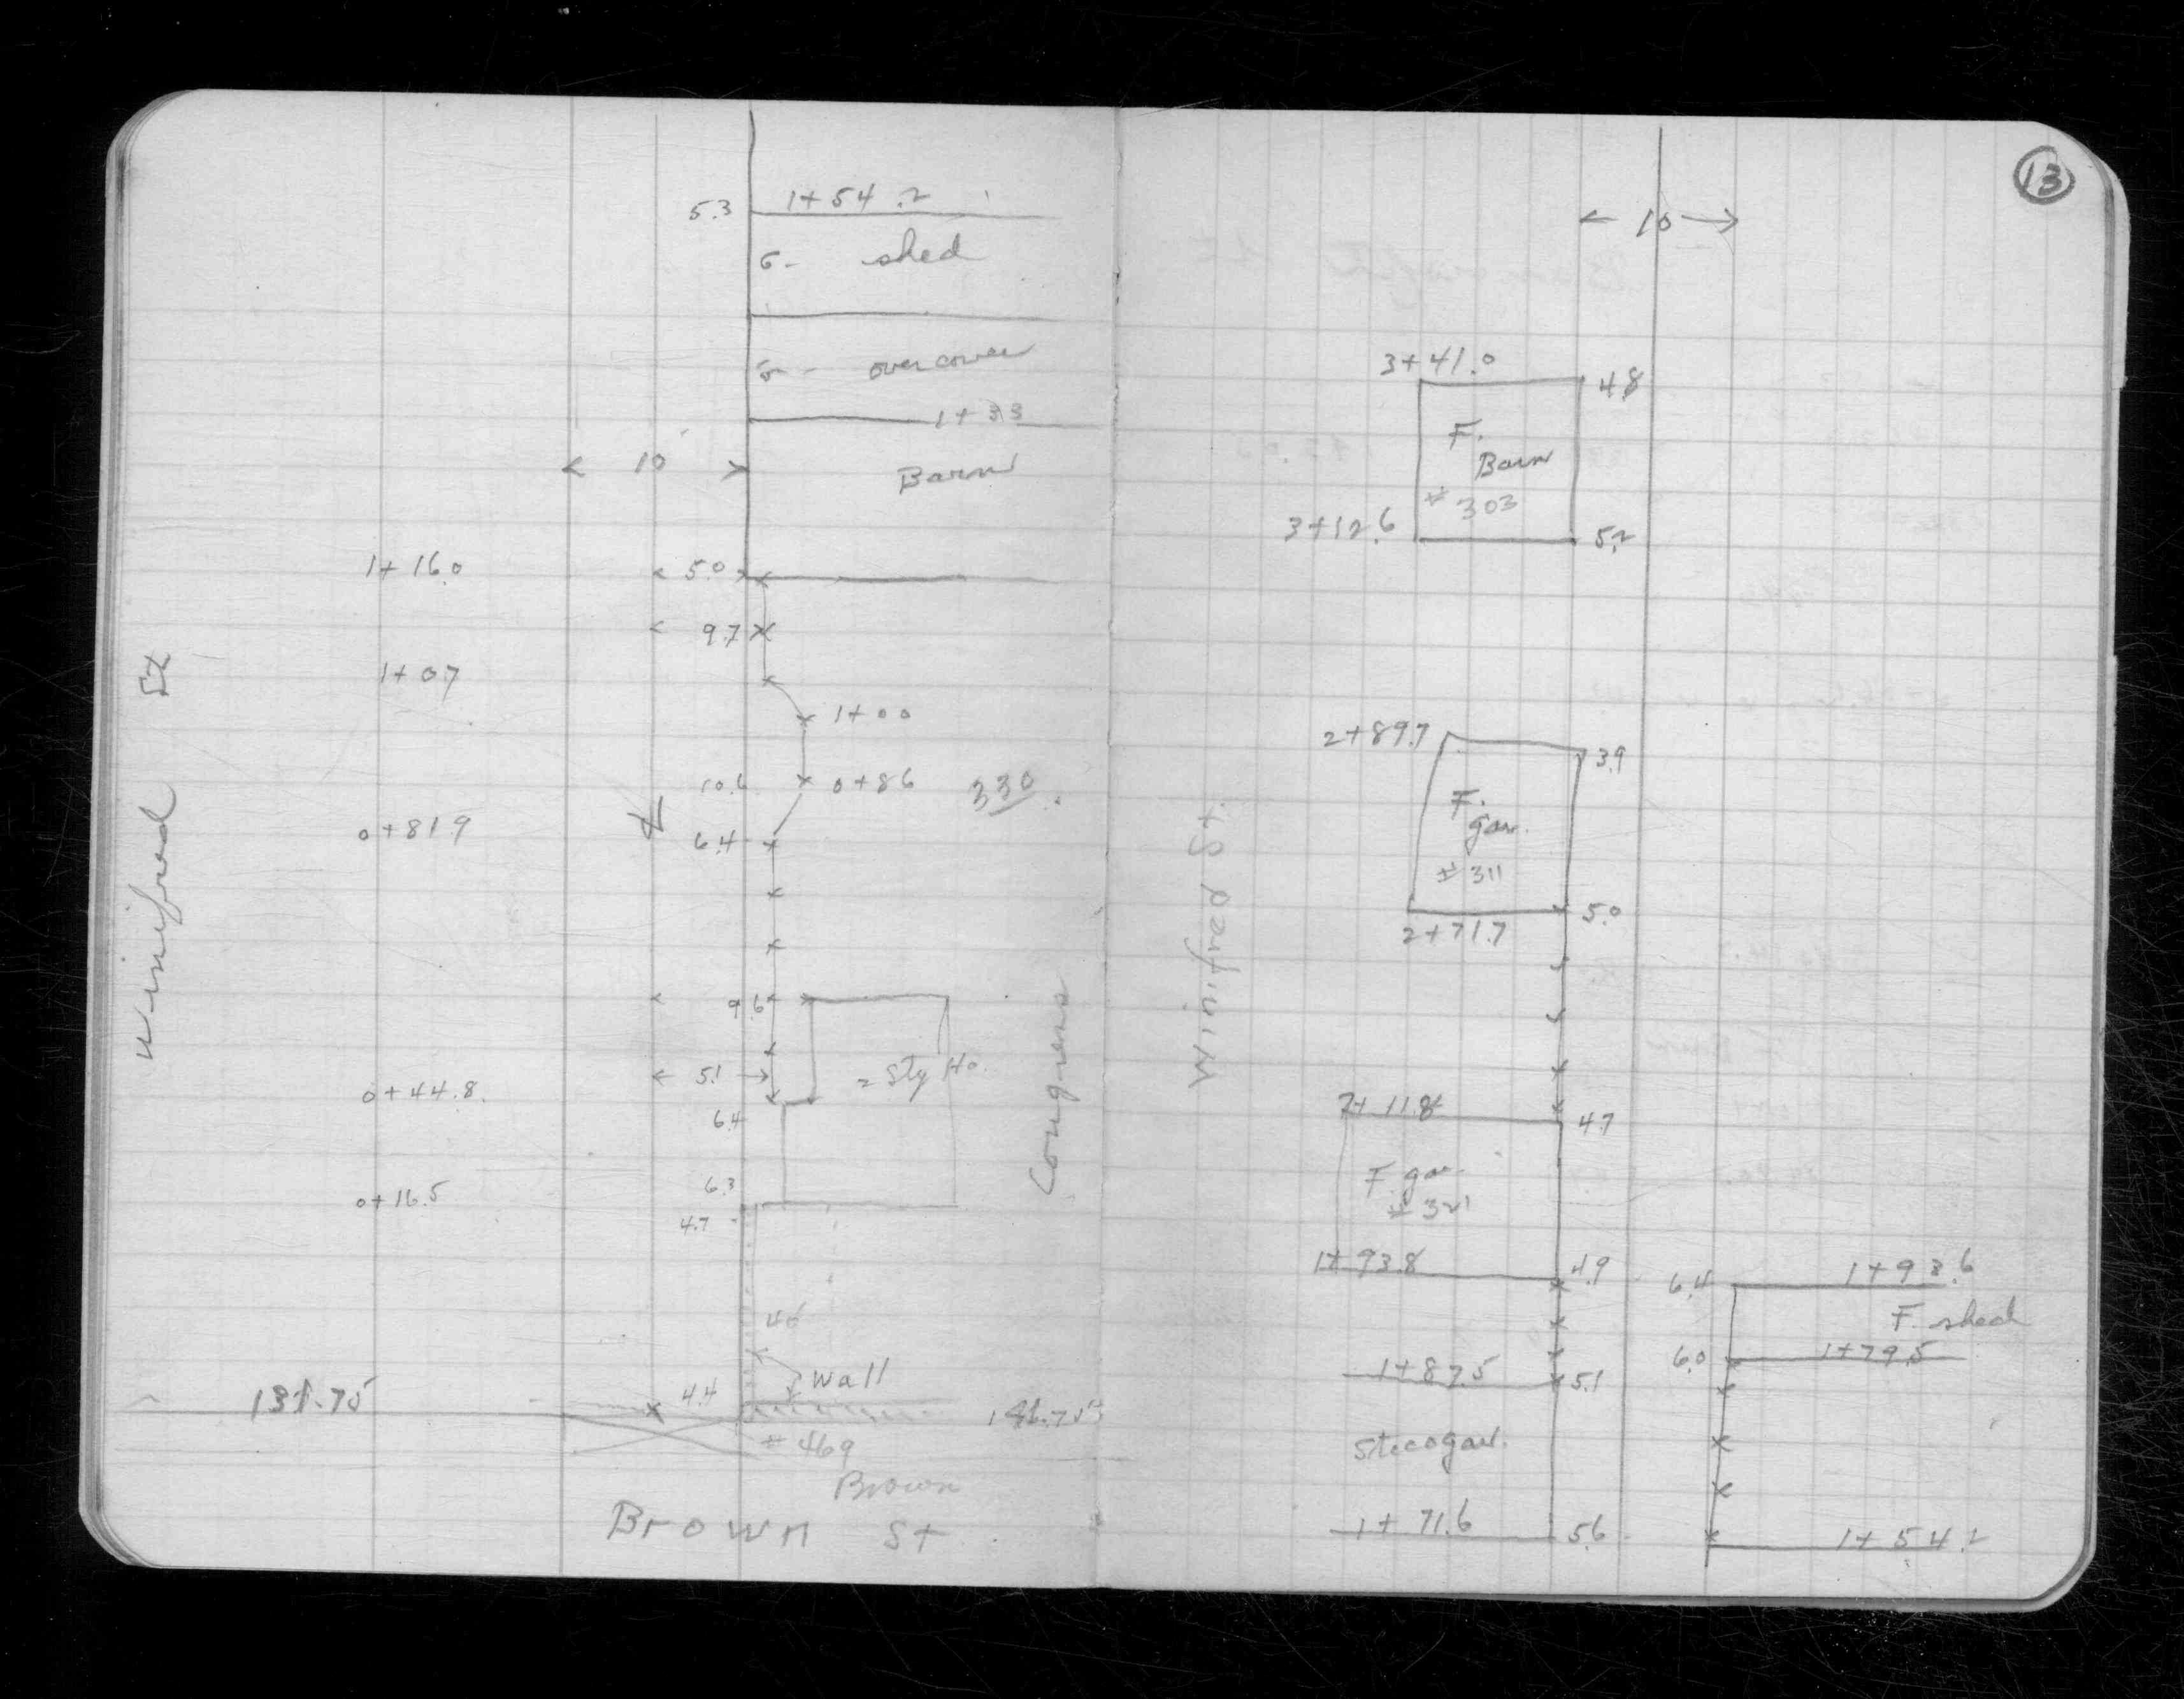 5.3 1+54.2
shed
over cover
1+33
< 10 > Barn
1+16.0 < 5.0
< 9.7
1+07
1+00
10.6 0+86 330
0+81.9 6.4
9.6
< 5.1 → 2 Sty Ho.
0+44.8
6.4
6.3
0+16.5
4.7
Wall
131.75 4.4
# 469
Brown
Brown St
Winifred St
Congress
13
← 10 →
3+41.0 4.8
F.
Barn
# 303
3+12.6 5.2
2+89.7 3.9
F.
gar.
# 311
5.0
2+71.7
Winifred St.
2+11.8 4.7
F. gar
# 321
1+93.8 4.9 6.4 1+93.6
F. shed
1+87.5 5.1 6.0 1+79.5
Stucco gar.
1+71.6 5.6 1+54.2